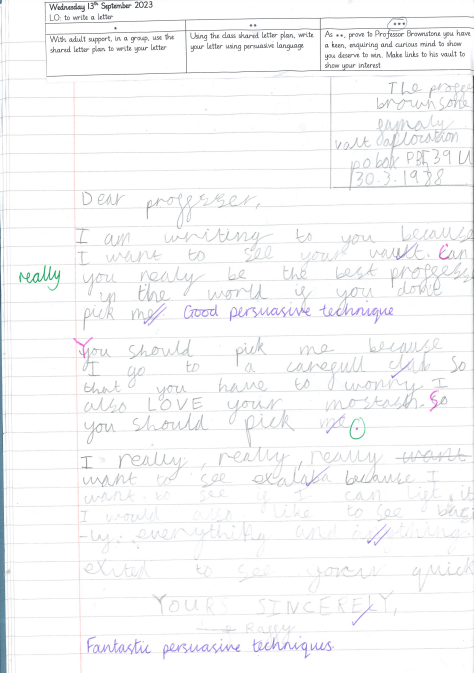 Wednesday 13th September 2023
LO: to write a letter
*
**
***
With adult support, in a group, use the shared letter plan to write your letter
Using the class shared letter plan, write your letter using persuasive language
As **, prove to Professor Brownstone you have a keen, enquiring and curious mind to show you deserve to win. Make links to his vault to show your interest
The
family
pobox
30.3.1988
Dear
I am writing to you because
I want to see your vault. Can
really
you realy be the best
in the world if you dont
pick me Good persuasive technique
You should pick me because
I go to a carefull club so
that you have to worry I
also LOVE your mostach. So
you should pick me.
I really, really, really want
want to see because I
want to see if I can
I would also like to see
everything and
exited to see quick
YOURS SINCERELY,
Fantastic persuasive techniques.